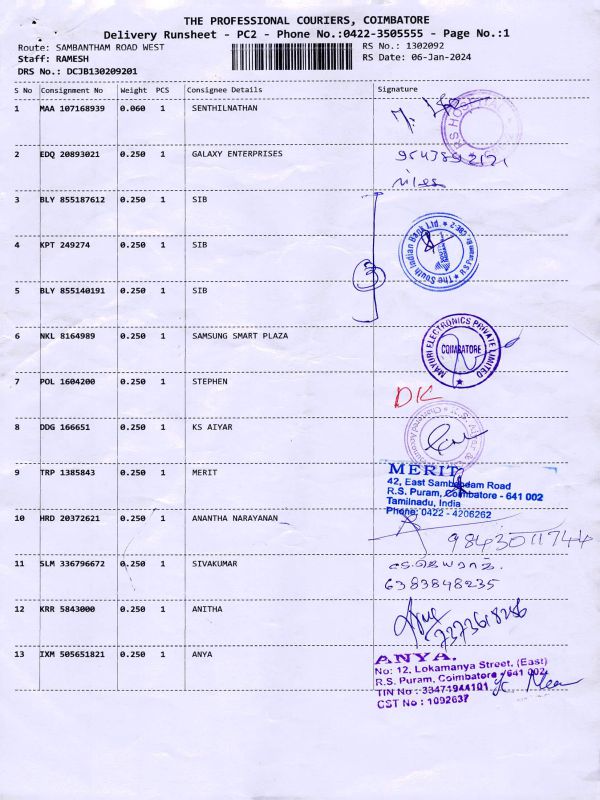 THE PROFESSIONAL COURIERS, COIMBATORE
Delivery Runsheet - PC2 - Phone No.:0422-3505555 - Page No.:1
Route: SAMBANTHAM ROAD WEST
RS No.: 1302092
Staff: RAMESH
RS Date: 06-Jan-2024
DRS No.: DCJB130209201
S No Consignment No Weight PCS Consignee Details Signature
1 MAA 107168939 0.060 1 SENTHILNATHAN
2 EDQ 20893021 0.250 1 GALAXY ENTERPRISES
3 BLY 855187612 0.250 1 SIB
The South Indian Bank Ltd.
4 KPT 249274 0.250 1 SIB
3
5 BLY 855140191 0.250 1 SIB
6 NKL 8164989 0.250 1 SAMSUNG SMART PLAZA
MAYURI ELECTRONICS PRIVATE LIMITED
COIMBATORE
7 POL 1604200 0.250 1 STEPHEN
DK
8 DDG 166651 0.250 1 KS AIYAR
9 TRP 1385843 0.250 1 MERIT
MERIT
42, East Sambandam Road
R.S. Puram, Coimbatore - 641 002
Tamilnadu, India
Phone: 0422 - 4206262
10 HRD 20372621 0.250 1 ANANTHA NARAYANAN
9843011744
11 SLM 336796672 0.250 1 SIVAKUMAR
6383848235
12 KRR 5843000 0.250 1 ANITHA
7373618246
13 IXM 505651821 0.250 1 ANYA
ANYA.
No: 12, Lokamanya Street, (East)
R.S. Puram, Coimbatore - 641 002.
TIN No : 33471944101
CST No : 1092637